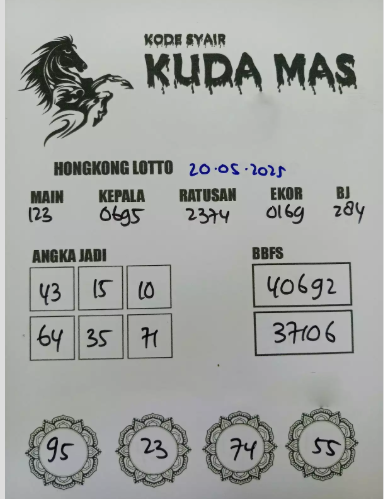 KODE SYAIR
KUDA MAS
HONGKONG LOTTO 20-05-2025
MAIN KEPALA RATUSAN EKOR BJ
123 0695 2374 0169 284
ANGKA JADI BBFS
43 15 10 40692
64 35 71 37106
95 23 74 55